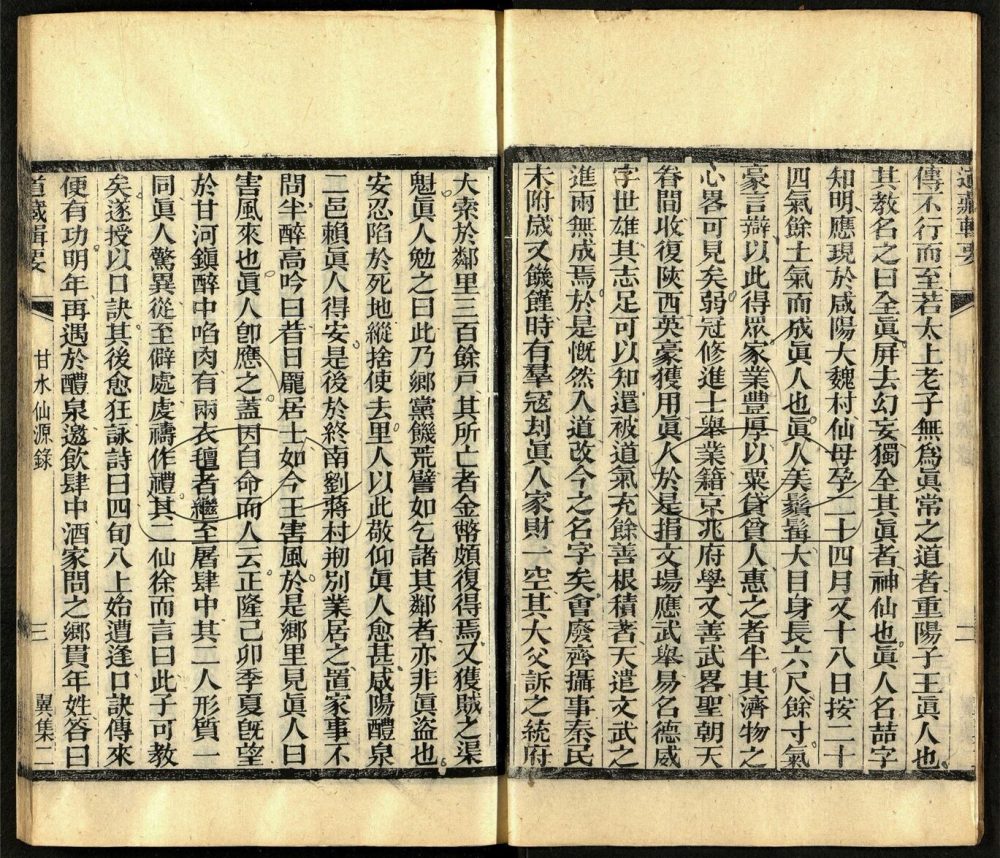 道藏輯要 二
傳不行而至若太上老子無爲眞常之道者重陽子王眞人也
其教名之曰全眞屏去幻妄獨全其眞者神仙也眞人名喆字
知明應現於咸陽大魏村仙母孕二十四月又十八日按二十
四氣餘土氣而成眞人也眞人美鬚髯大目身長六尺餘寸氣
豪言辯以此得眾家業豐厚以粟貸貧人惠之者半其濟物之
心畧可見矣弱冠修進士舉業籍京兆府學又善武畧聖朝天
眷間收復陝西英豪獲用眞人於是捐文場應武舉易名德威
字世雄其志足可以知還被道氣充餘善根積著天遣文武之
進兩無成焉於是慨然入道改今之名字矣會廢齊攝事秦民
未附歲又饑饉時有羣寇刦眞人家財一空其大父訴之統府
大索於鄰里三百餘戸其所亡者金幣頗復得焉又獲賊之渠
魁眞人勉之曰此乃鄉黨饑荒譬如乞諸其鄰者亦非眞盜也
安忍陷於死地縱捨使去里人以此敬仰眞人愈甚咸陽醴泉
二邑賴眞人得安是後於終南劉蔣村剏别業居之置家事不
問半醉高吟曰昔日龐居士如今王害風於是鄉里見眞人曰
害風來也眞人卽應之蓋因自命而人云正隆己卯季夏旣望
於甘河鎭醉中啗肉有兩衣氊者繼至屠肆中其二人形質一
同眞人驚異從至僻處虔禱作禮其二仙徐而言曰此子可教
矣遂授以口訣其後愈狂詠詩曰四旬八上始遭逢口訣傳來
便有功明年再遇於醴泉邀飲肆中酒家問之鄉貫年姓答曰
道藏輯要 甘水仙源錄 三 翼集二